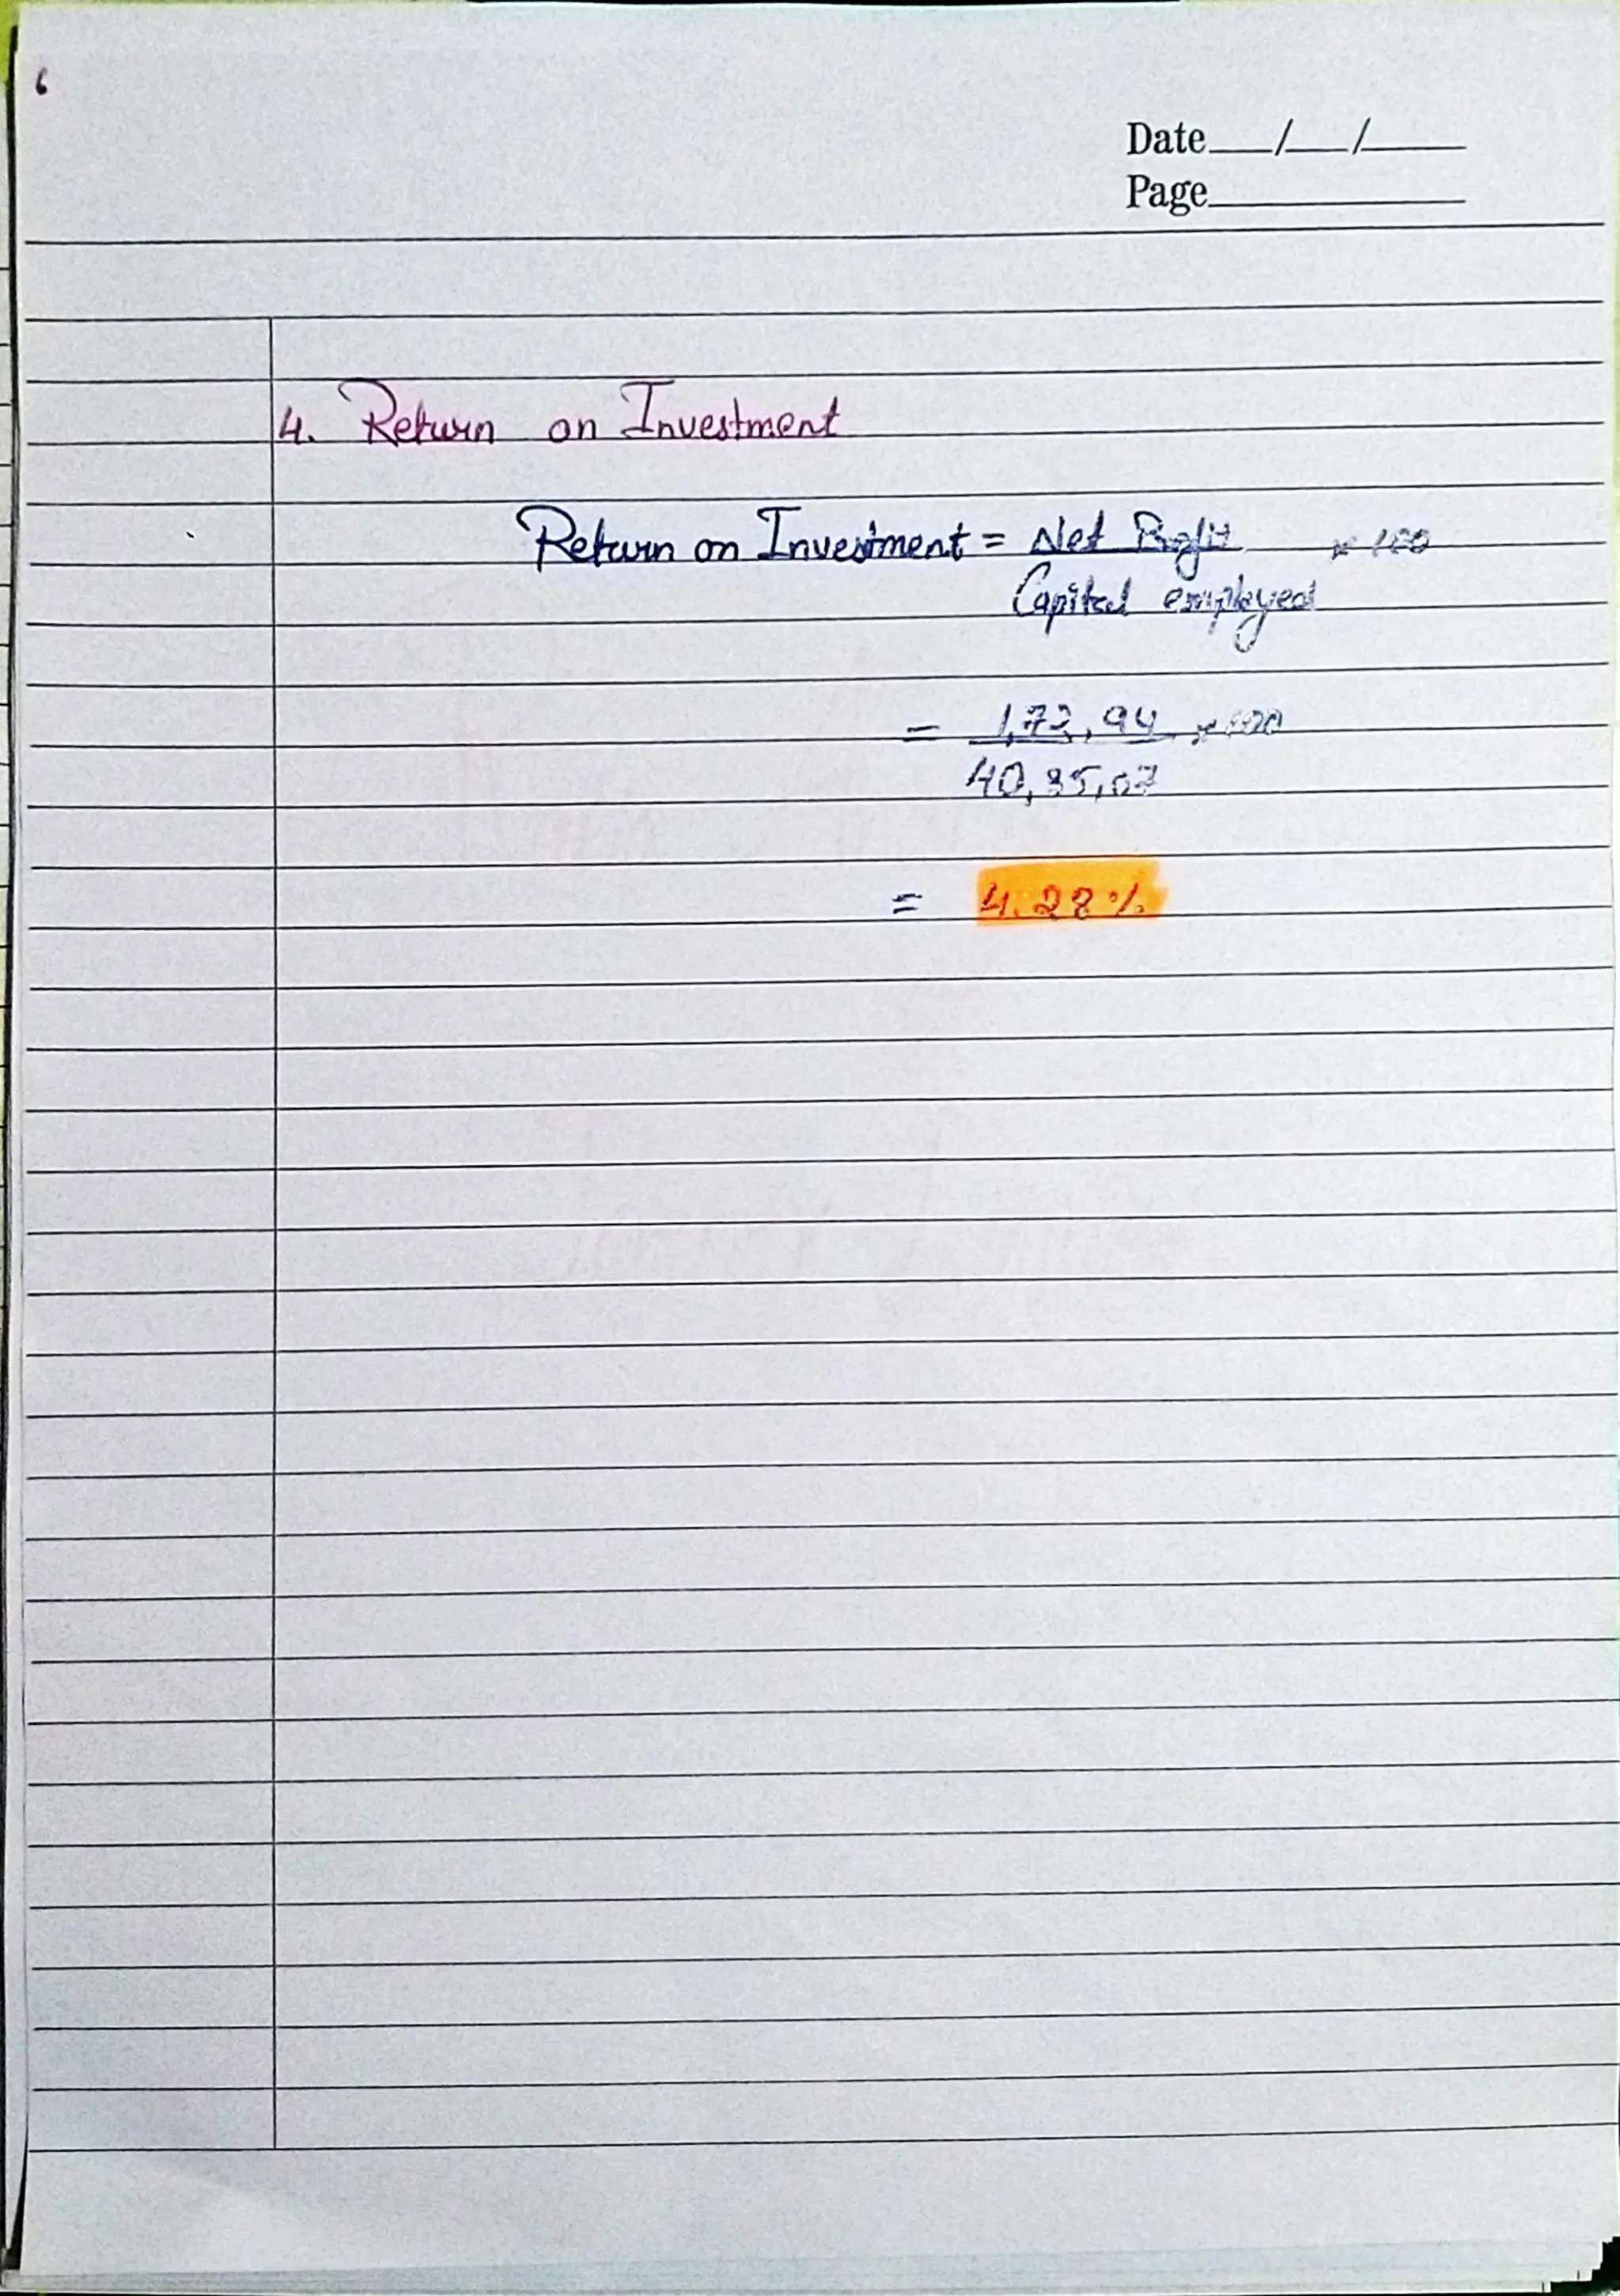 6
Date___/___/_____
Page___________
4. Return on Investment
Return on Investment = Net Profit × 100
Capital employed
= 1,72,94 × 100
40,35,07
= 4.28%